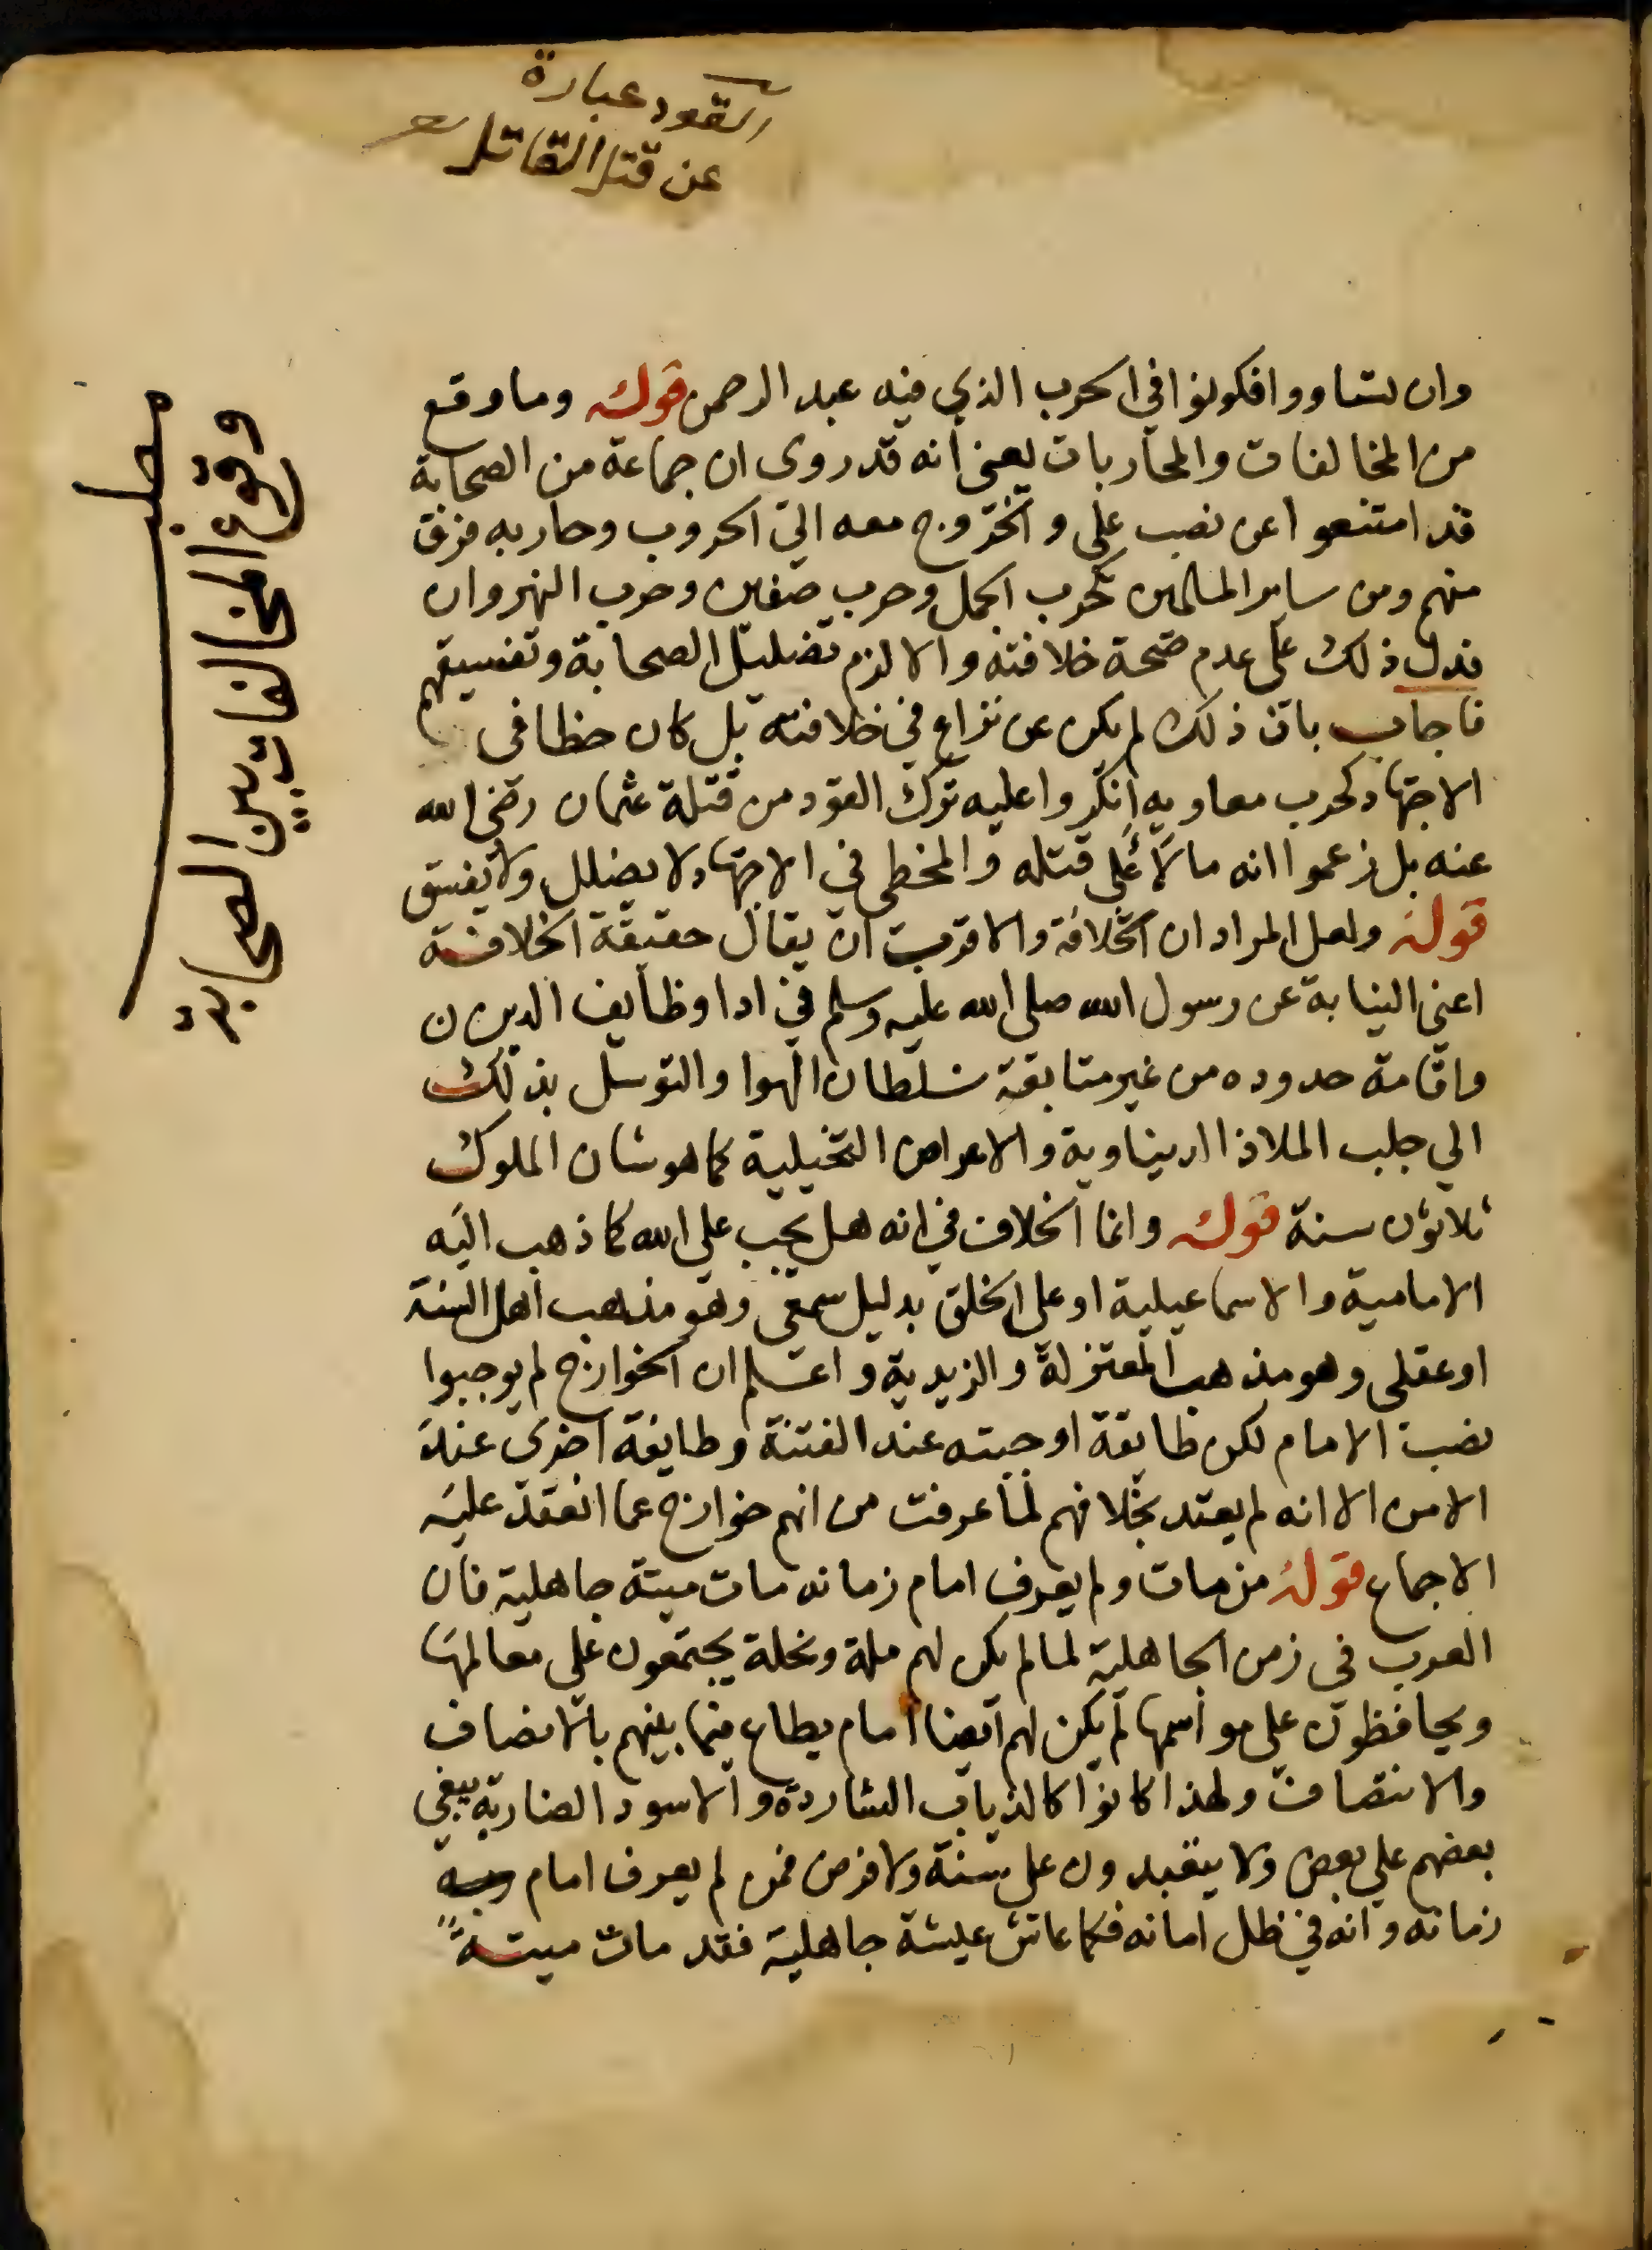 القود عبارة
عن قتل القاتل
وان تساووا فكونوا في الحرب الذي فيه عبد الرحمن قوله وما وقع
من المخالفات والمحاربات يعني انه قد روى ان جماعة من الصحابة
قد امتنعوا عن نصب علي والخروج معه الي الحروب وحاربه فرق
منهم ومن ساير المسلمين كحرب الجمل وحرب صفين وحرب النهروان
فدل ذلك علي عدم صحة خلافته والا لزم تضليل الصحابة وتفسيقهم
فاجاب بان ذلك لم يكن عن نزاع في خلافته بل كان خطا في
الاجتهاد كحرب معاويه انكروا عليه ترك القود من قتلة عثمان رضي الله
عنه بل زعموا انه مالأ علي قتله والمخطي في الاجتهاد لا يضلل ولا يفسق
قوله ولعل المراد ان الخلافة والاقرب ان يقال حقيقة الخلافة
اعني النيابة عن رسول الله صلي الله عليه وسلم في ادا وظايف الدين
واقامة حدوده من غير متابعة سلطان الهوا والتوسل بذلك
الي جلب الملاذ الديناوية والاعراض التخيلية كما هو شان الملوك
ثلاثون سنة قوله وانما الخلاف في انه هل يجب علي الله كما ذهب اليه
الامامية والاسماعيلية او علي الخلق بدليل سمعي وهو مذهب اهل السنة
او عقلي وهو مذهب المعتزلة والزيدية واعلم ان الخوارج لم يوجبوا
نصب الامام لكن طايفة اوجبته عند الفتنة وطايفة اخرى عند
الامن الا انه لم يعتد بخلافهم لما عرفت من انهم خوارج عما انعقد عليه
الاجماع قوله من مات ولم يعرف امام زمانه مات ميتة جاهلية فان
العرب في زمن الجاهلية لما لم يكن لهم ملة ونحلة يجتمعون على معالمها
ويحافظون علي مواسمها لم يكن لهم ايضا امام يطاع فيما بينهم بالانصاف
والانتصاف ولهذا كانوا كالذياب الشاردة والاسود الضارية يبغي
بعضهم علي بعض ولا يتعبدون علي سنة ولا فرض فمن لم يعرف امام
زمانه وانه في ظل امانه فكما عاش عيشة جاهلية فقد مات ميتة
مطلب
وقوع المخالفات بين الصحابة